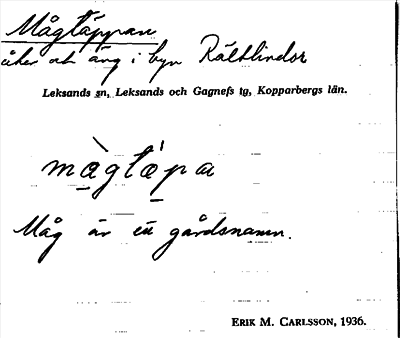 Mågtäppan
åker och äng i byn Rältlindor
Leksands sn, Leksands och Gagnefs tg, Kopparbergs län.
màgtǽpa
Måg är ett gårdsnamn.
ERIK M. CARLSSON, 1936.